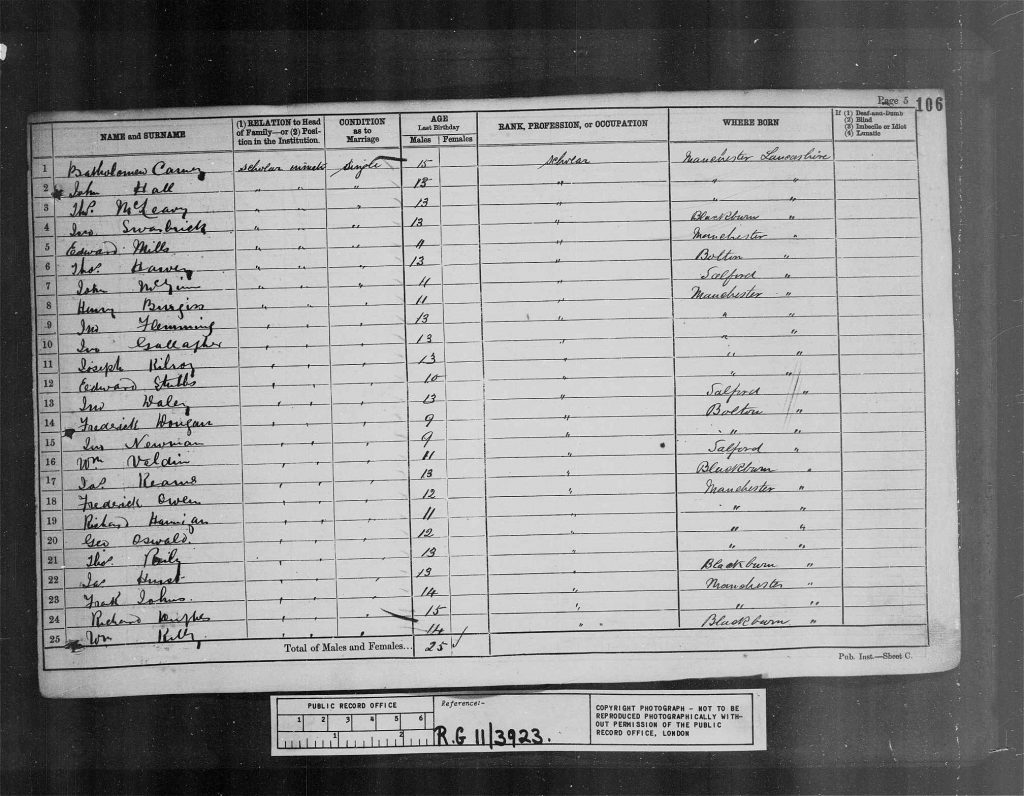 Page 5 106
NAME and SURNAME (1) RELATION to Head of Family—or (2) Position in the Institution. CONDITION as to Marriage AGE Last Birthday Males Females RANK, PROFESSION, or OCCUPATION WHERE BORN If (1) Deaf-and-Dumb (2) Blind (3) Imbecile or Idiot (4) Lunatic
1 Bartholomew Carney scholar inmate single 15 scholar Manchester Lancashire
2 John Hall " " " 13 " " "
3 Thos. McLeavy " " " 13 " " "
4 Jno. Swarbrick " " " 13 " Blackburn "
5 Edward Mills " " " 11 " Manchester "
6 Thos. " " " 13 " Bolton "
7 John McGinn " " " 11 " Salford "
8 Henry Burgiss " " " 11 " Manchester "
9 Jno Flemming " " " 13 " " "
10 Jno Gallagher " " " 13 " " "
11 Joseph Kilroy " " " 13 " " "
12 Edward Stubbs " " " 10 " " "
13 Jno Daley " " " 13 " Salford "
14 Frederick Dougan " " " 9 " Bolton "
15 Jno Newman " " " 9 " " "
16 Wm " " " 11 " Salford "
17 Jas. Kearns " " " 13 " Blackburn "
18 Frederick Owen " " " 12 " Manchester "
19 Richard Hannigan " " " 11 " " "
20 Geo Oswald. " " " 12 " " "
21 Thos. Reily " " " 13 " " "
22 Jas Hurst " " " 13 " Blackburn "
23 Frak Johns. " " " 14 " Manchester "
24 Richard Hughes " " " 15 " " "
25 Wm Kelly " " " 14 " Blackburn "
Total of Males and Females... 25
Pub. Inst.—Sheet C.
PUBLIC RECORD OFFICE
1 2 3 4 5 6
1 2
Reference:-
R.G 11/3923.
COPYRIGHT PHOTOGRAPH - NOT TO BE
REPRODUCED PHOTOGRAPHICALLY WITH-
OUT PERMISSION OF THE PUBLIC
RECORD OFFICE, LONDON